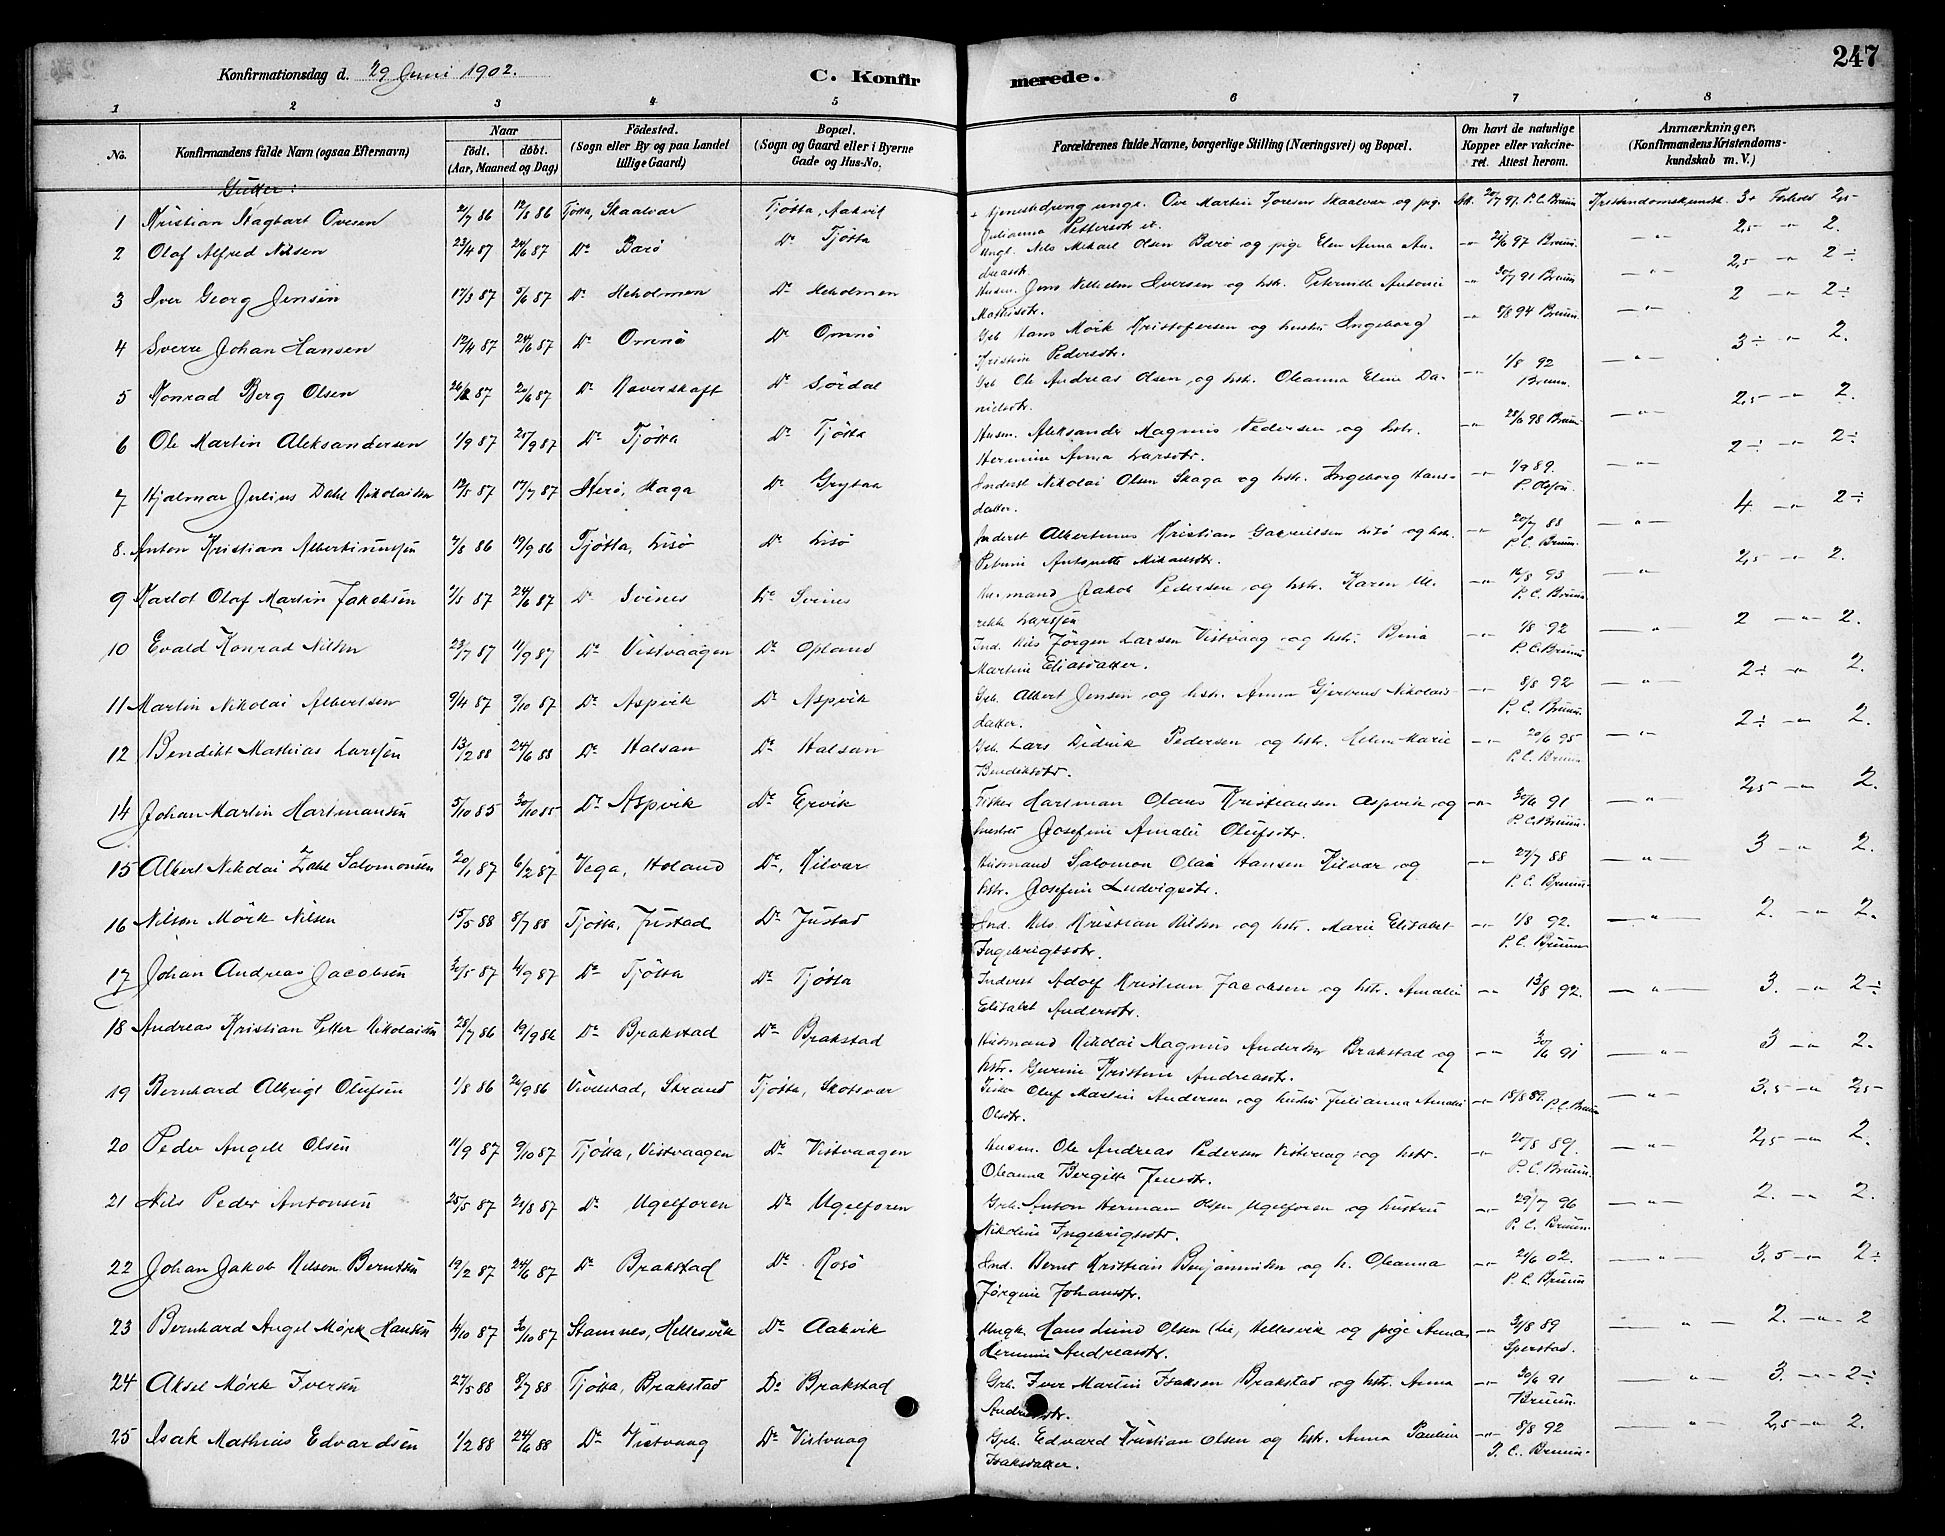 247
Konfirmationsdag d. 29 Juni 1902. C. Konfirmerede.
1 2 3 4 5 6 7 8
No. Konfirmandens fulde Navn (ogsaa Efternavn) Naar født. døbt. (Aar, Maaned og Dag) Fødested. (Sogn eller By og paa Landet tillige Gaard) Bopæl. (Sogn og Gaard eller i Byerne Gade og Hus-No. Forældrenes fulde Navne, borgerlige Stilling (Næringsvei) og Bopæl. Om havt de naturlige Kopper eller vakcineret. Attest herom. Anmærkninger. (Konfirmandens Kristendomskundskab m. V.)
Gutter:
1 Kristian Magbart Ovesen 2/7 86 12/8 86 Tjøtta, Skaalvær Tjøtta, Aakvik ungk. Ove Martin Joresen Skaalvær og pig. Att. 20/7 91. P. C. Bruun Kristendomskundsk. 3+ Forhold 2,5
Julianna Pettersdt
2 Olaf Alfred Nilsen 23/4 87 24/6 87 Do Barø Do Tjøtta Ungk. Nils Mikael Olsen Barø og pige Elen Anna An- 21/6 97 Bruun. 2,5 2.
dreasdt.
3 Iver Georg Jensen 17/3 87 9/6 87 Do Heholmen Do Heholmen Husm. Jens Vilhelm Iversen og hstr. Peternille Antonie 30/7 91 Bruun 2,5 2÷
Mathisdtr.
4 Sverre Johan Hansen 12/4 87 24/6 87 Do Omnø Do Omnø Grb. Hans Mørk Kristofersen og hustru Ingeborg 8/8 94 Bruun. 2 2÷
Kristine Pedersdtr.
5 Konrad Berg Olsen 26/2 87 20/6 87 Do Raverskaft Do Sørdal Grb Ole Andreas Olsen og hstr. Oleanna Eline Da- 1/8 92 Bruun. 3÷ 2.
nielsdtr.
6 Ole Martin Aleksandersen 1/9 87 25/9 87 Do Tjøtta Do Tjøtta Husm. Aleksander Magnus Pedersen og hstr. 28/6 98 Bruun 2,5 2.
Hermine Anna Larsdtr.
7 Hjalmar Julius Dahl Nikolaisen 12/5 87 17/7 87 Herø, Skaga Do Grytaa Inderst Nikolai Olsen Skaga og hstr. Ingeborg Hans- 1/9 89. P. Olsen. 2÷ 2÷
datter.
8. Anton Kristian Albertinussen 7/8 86 19/9 86 Tjøtta, Lisø Do Lisø Inderst Albertinus Kristian Gabrielsen Lisø og hstr. 20/7 88 P. C. Bruun. 4 2÷
Petrine Antonette Mikalsdtr.
9 Karlot Olaf Martin Jakobsen 7/5 87 24/6 87 Do Svines Do Svines Husmand Jakob Pedersen og hstr. Karen Ul- 16/8 93 P. C. Bruun 2,5 2.
rikke Larssen
10 Evald Konrad Nilsen 23/7 87 11/9 87 Do Vistvaagen Do Opland Ind. Nils Jørgen Larsen Vistvaag og hstr. Bina 1/8 92 P. C. Bruun 2 2.
Martine Eliasdatter.
11 Martin Nikolai Albertsen 9/4 87 9/10 87 Do Aspvik Do Aspvik Grb. Albert Jensen og hstr. Anna Gjertrud Nikolais- 8/8 92 P. C. Bruun. 2÷ 2.
datter.
12 Bendikt Mathias Larssen 13/2 88 24/6 88 Do Halsan Do Halsan Grb. Lars Didrik Pedersen og hstr. Ellen Marie 20/6 95 P. C. Bruun 2÷ 2.
Bendiksdtr.
14 Johan Martin Hartmansen 5/10 85 30/10 85 Do Aspvik Do Ervik Fisker Hartman Olaus Kristiansen Aspvik og 30/6 91 P. C. Bruun. 2,5 2.
hustru Josefine Amalie Olufsdtr.
15 Albert Nikolai Zahl Salomonsen 20/1 87 6/2 87 Vega, Holand Do, Kilvær Husmand Salomon Olai Hansen Kilvær og 27/7 88 P. C. Bruun. 3 2.
hstr. Josefine Ludvigsdtr.
16 Nilson Mørk Nilsen 15/5 88 8/7 88 Tjøtta, Justad Do Justad Ind. Nils Kristian Nilsen og hstr. Marie Elisabet 1/8 92. P. C. Bruun 2. 2.
Ingebrigtsdtr.
17 Johan Andreas Jacobsen 30/5 87 4/9 87 Do Tjøtta Do Tjøtta Inderst Adolf Kristian Jacobsen og hstr. Amalie 13/8 92. 3. 2÷
Elisabet Andersdtr.
18 Andreas Kristian Petter Nikolaisen 28/7 86 19/9 86 Do Brakstad Do Brakstad Husmand Nikolai Magnus Andersen Brakstad og 30/6 91 3 2.
hstr. Gurine Kristine Andreasdtr.
19 Bernhard Albrigt Olufsen 1/8 86 26/9 86 Vivelstad, Strand Tjøtta, Skotsvær Fisker Oluf Martin Andersen og hustru Julianna Amalie 18/8 89. P. C. Bruun 3,5 2,5
Olsdtr.
20 Peder Angell Olsen 11/9 87 9/10 87 Tjøtta, Vistvaagen Do Vistvaagen Husm. Ole Andreas Pedersen Vistvaag og hstr. 20/8 89. P. C. Bruun. 2,5 2.
Oleanna Bergitte Jensdtr.
21 Nils Peder Antonsen 25/5 87 21/8 87 Do Ugelforen Do Ugelforen Grb. Anton Herman Olsen Ugelforen og hustru 29/7 96 P. C. Bruun. 2. 2.
Nikoline Ingebrigtsdtr.
22 Johan Jakob Nilsen Berntsen 19/2 87 24/6 87 Do Brakstad Do Rosø Ind. Bernt Kristian Benjaminsen og h. Oleanna 21/6 02. P. C. Bruun 3,5 2÷
Jørgine Johansdtr.
23 Bernhard Angel Mørk Hansen 4/10 87 30/10 87 Stamnes, Hellesvik Do Aakvik Ungk. Hans Lund Olsen Lie, Hellesvik og pige Anna 31/8 89 Sperstad. 2. 2
Hermine Andreasdtr.
24 Aksel Mørk Iversen 27/5 88 8/7 88 Tjøtta, Brakstad Do Brakstad Grb. Iver Martin Isaksen Brakstad og hstr. Anna 30/6 91 Bruun. 3. 2÷
Andreasdtr.
25 Isak Mathias Edvardsen 1/2 88 24/6 88 Do Vistvaag Do Vistvaag Grb. Edvard Kristian Olsen og hstr. Anna Pauline 8/8 92 P. C. Bruun. 2,5 2.
Isaksdatter.